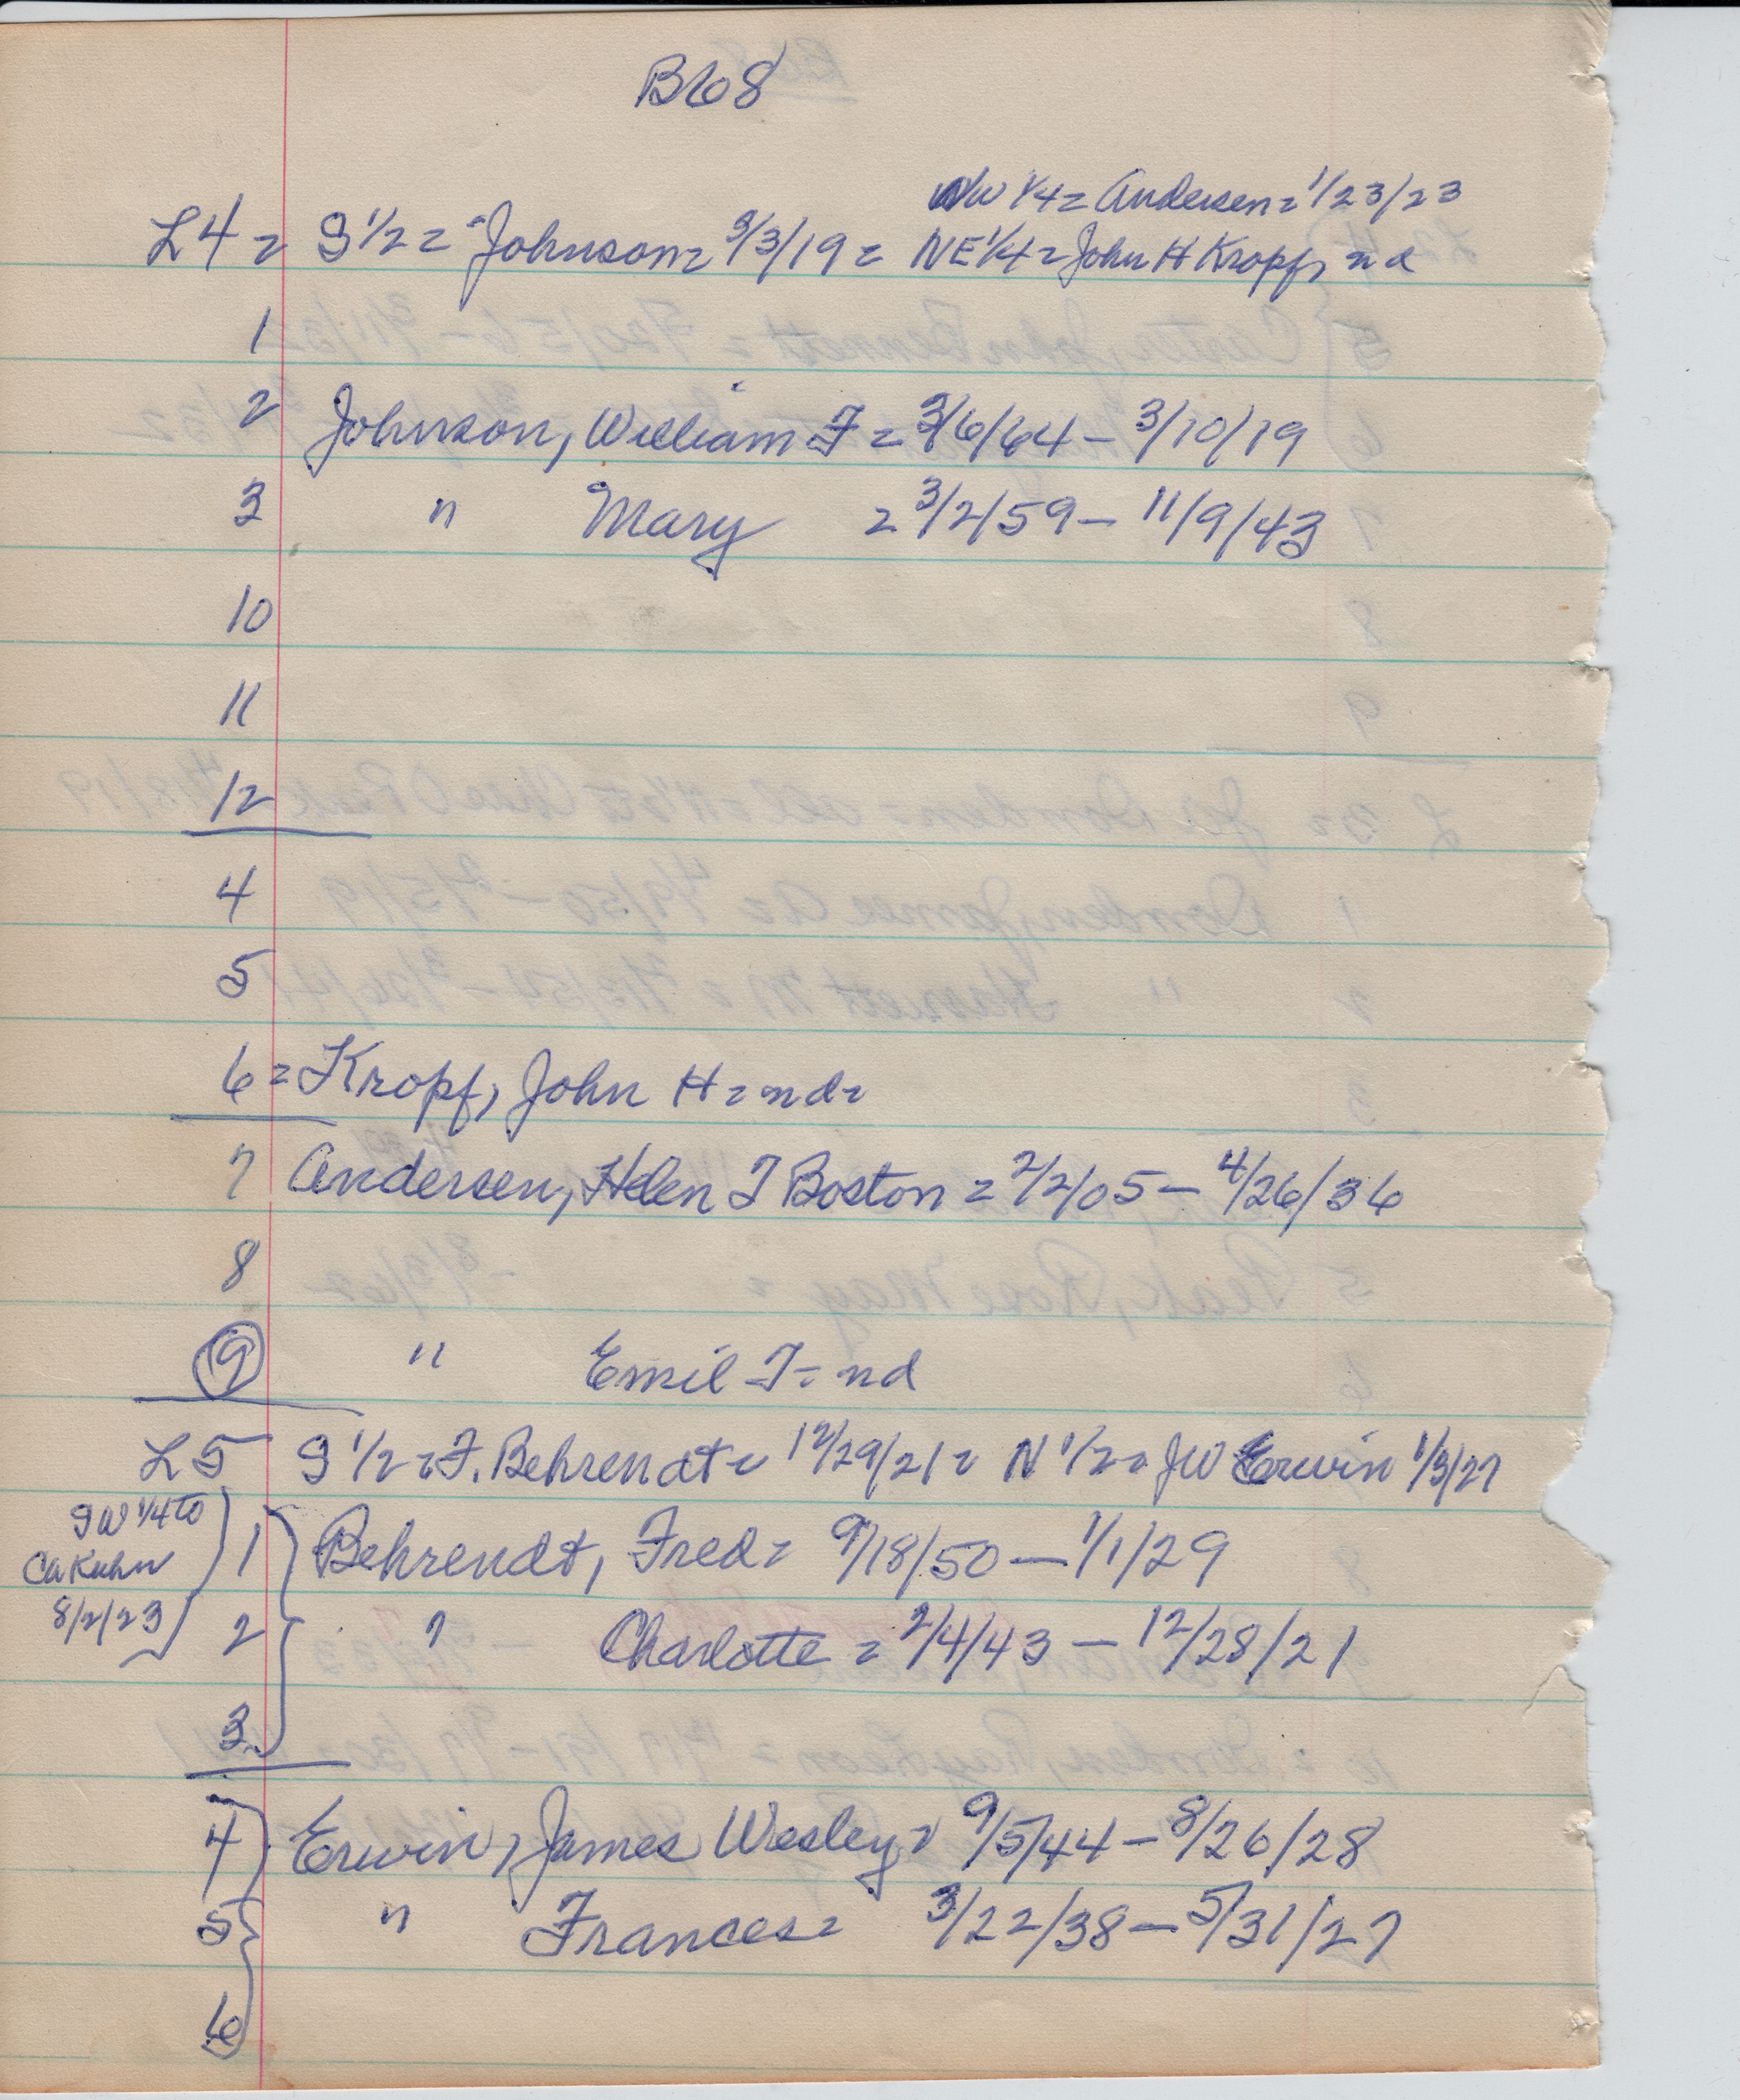 B68
NW 1/4 = Andersen = 1/23/23
L4 = S 1/2 = Johnson = 3/3/19 = NE 1/4 = John H Kropf, nd
1
2 Johnson, William F = 3/6/64 – 3/10/19
3 " Mary = 3/2/59 – 11/9/43
10
11
12
4
5
6 = Kropf, John H = nd =
7 Andersen, Helen I Boston = 2/2/05 – 4/26/36
8
9 " Emil T = nd
L5 S 1/2 = F. Behrendt = 12/29/21 = N 1/2 = JW Erwin 1/3/27
SW 1/4 to
CA Kuhn
8/2/23
1 Behrendt, Fred = 9/18/50 – 1/1/29
2 " Charlotte = 2/4/43 – 12/28/21
3
4 Erwin, James Wesley = 9/5/44 – 8/26/28
5 " Frances = 3/22/38 – 5/31/27
6